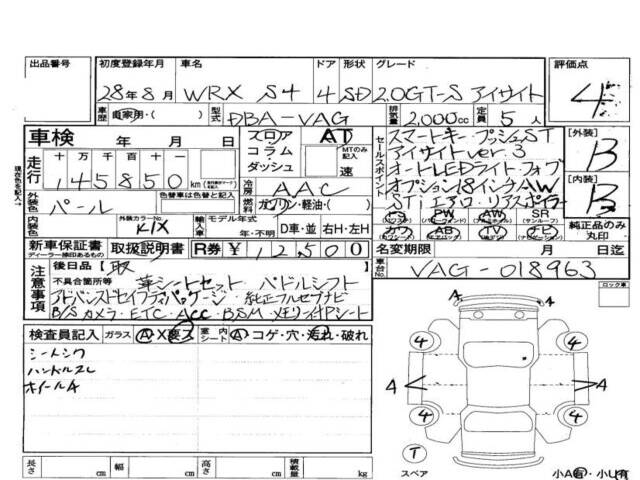 出品番号 初度登録年月 車名 ドア 形状 グレード 評価点
28年8月 WRX S4 4 SD 2.0GT-S アイサイト 4
車歴 自家用・( ) 型式 DBA-VAG 排気量 2,000cc 定員 5人
車検 年 月 日
フロア コラム ダッシュ AT MTのみ記入 速
セールスポイント スマートキー プッシュST
アイサイトver.3
オートLEDライト フォグ
オプション18インチAW
STiエアロ・リアスポイラー
[外装] B
[内装] B
走行 十 万 千 百 十 一
145850 km
冷房 AAC
燃料 ガソリン・軽油・( )
外装色 パール
外装カラーNo. K1X
色替車は色替と記入
内装色
輸入車 モデル年式 年・不明 D車・並 右H・左H
革シート PW AW SR (サンルーフ)
カワ AB TV ナビ
純正品のみ丸印
新車保証書 取扱説明書 R券 ¥12,500
ディーラー捺印あるもの
名変期限 月 日迄
車台No. VAG-018963
注意事項 後日品 [取 ]
不具合箇所等 革シートセット パドルシフト
アドバンスドセイフティパッケージ・純正フルセグナビ
B/Sカメラ・ETC・ACC・BSM・メモリ付Pシート
ロック車
検査員記入 ガラス A・X要ス 室内シート A・コゲ・穴・汚れ・破れ
シートシワ
ハンドルスレ
ホイールA
A A
4 4
A A
4 4
T
スペア
長さ cm 幅 cm 高さ cm 積載量 kg
小A有・小U有